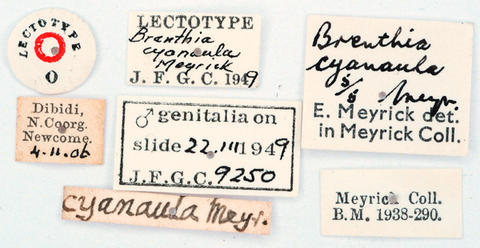 LECTOTYPE
O
LECTOTYPE
Brenthia
cyanaula
Meyrick
J. F. G. C. 1949
Brenthia
cyanaula
5/5 Meyr.
E. Meyrick det.
in Meyrick Coll.
Dibidi,
N.Coorg.
Newcome.
4.11.06
♂ genitalia on
slide 22.III1949
J.F.G.C. 9250
cyanaula Meyr.
Meyrick Coll.
B.M. 1938-290.